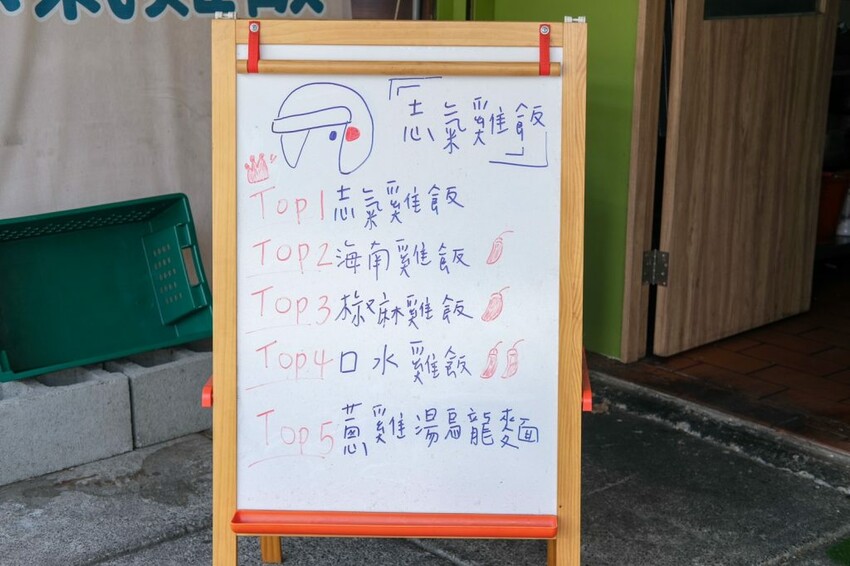 「志氣雞飯」
Top1志氣雞飯
Top2海南雞飯
Top3椒麻雞飯
Top4口水雞飯
Top5蔥雞湯烏龍麵